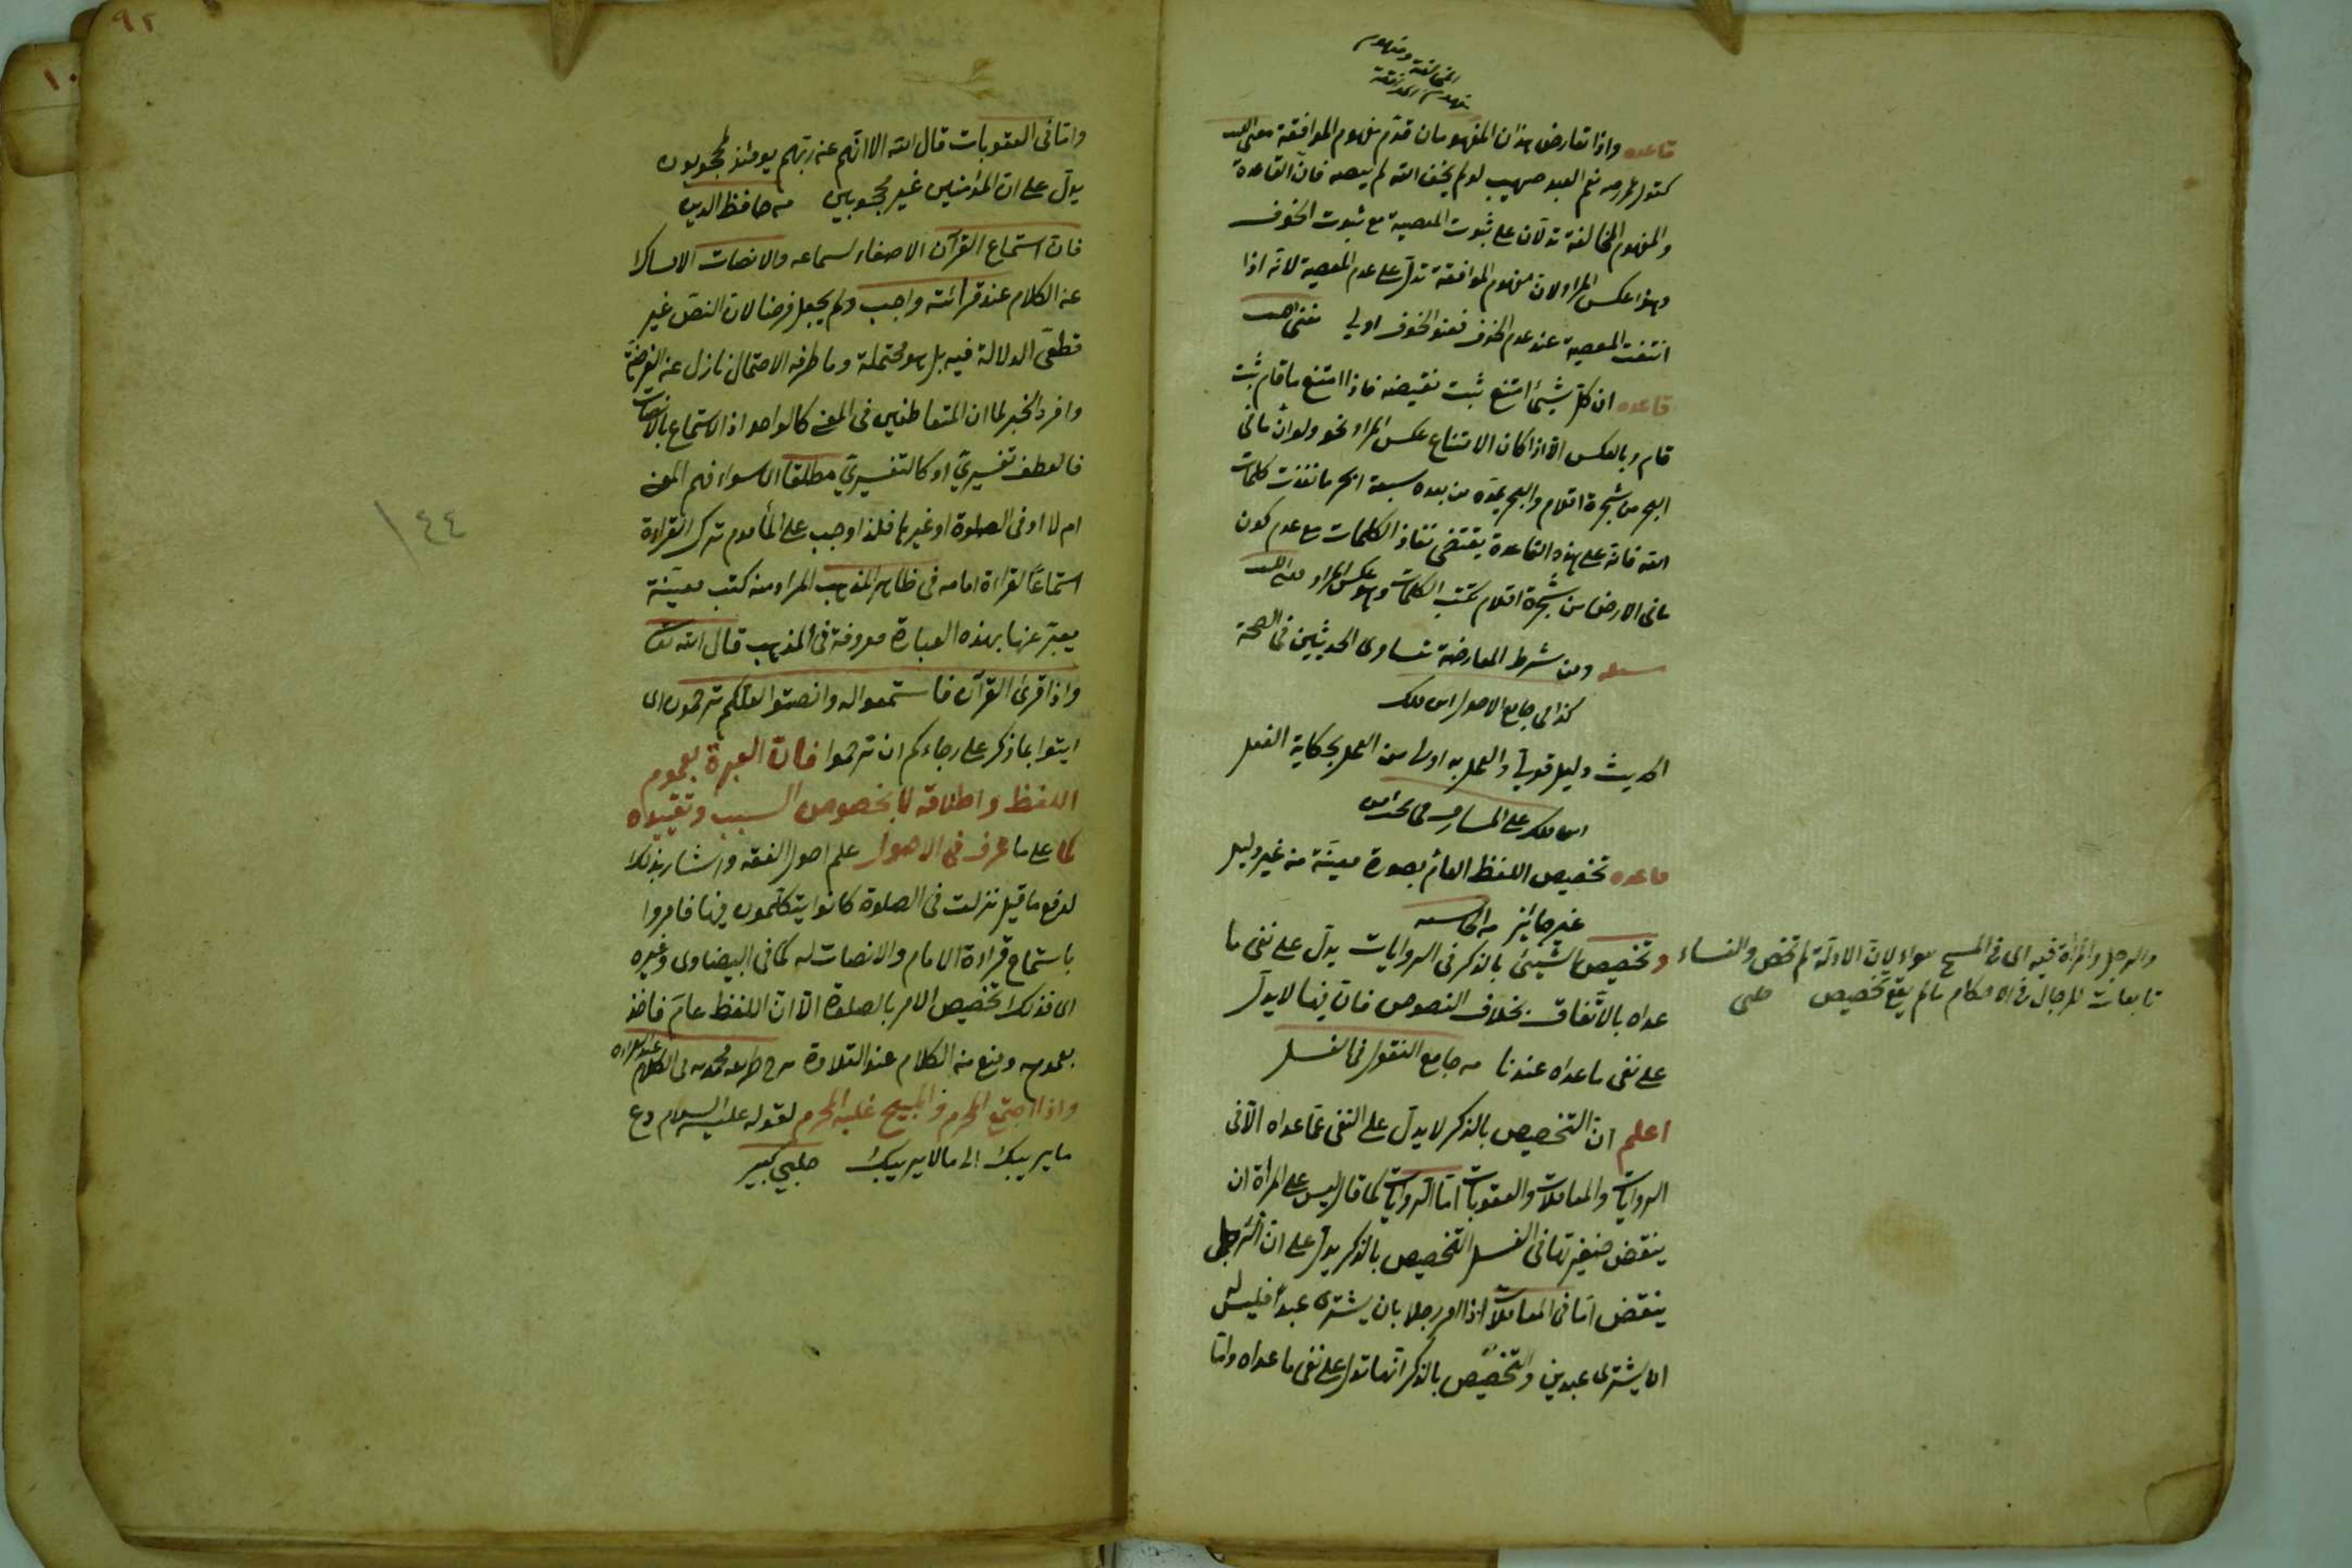 المخالفة ومفهوم
مفهوم الموافقة
قاعده واذا تعارض هذان المفهومان قدّم مفهوم الموافقة
كقول عمر رضه نعم العبد صهيب لو لم يخف الله لم يعصه فان القاعدة
والمفهوم المخالفة تدلان على ثبوت المعصية مع ثبوت الخوف
وهذا عكس المراد لان مفهوم الموافقة تدل على عدم المعصية لانه اذا
انتفت المعصية عند عدم الخوف فعند الخوف اولى
قاعده ان كل شيئ امتنع ثبت نقيضه فاذا امتنع ما قام ثبت
قام وبالعكس الا اذا كان الامتناع عكس المراد نحو ولو ان ما فى
من شجرة اقلام والبحر يمدّه من بعده سبعة ابحر ما نفدت كلمات
الله فانه على هذه القاعدة يقتضى نفاذ الكلمات مع عدم كون
ما فى الارض من شجرة اقلام تكتب الكلمات وهو عكس المراد
ومن شرط المعارضة تساوى الحديثين فى الصحة
كذا فى جامع الاصول ابن ملك
الحديث دليل قولي والعمل به اولى من العمل بحكاية الفعل
ابن ملك على المشارق
قاعده تخصيص اللفظ العام بصورة معينة من غير دليل
غير جائز
وتخصيص الشيئ بالذكر فى الروايات يدلّ على نفى ما
عداه بالاتفاق بخلاف النصوص فان فيها لا يدل
على نفى ما عداه عندنا من جامع النقول فى الغسل
والرجل والمرأة فيه اى فى المسح سواء لان الادلّة لم تخص والنساء
تابعات للرجال فى الاحكام ما لم يقع تخصيص حلبى
اعلم ان التخصيص بالذكر لا يدل على النفى عمّا عداه الا فى
الروايات والمعاملات والعقوبات امّا الروايات كما قال ليس على المرأة ان
ينقض ضفيرتها فى الغسل التخصيص بالذكر يدل على ان الرجل
ينقض امّا فى المعاملات اذا امر رجلا بان يشترى عبدا فليس له
ان يشترى عبدين والتخصيص بالذكر انها تدل على نفى ما عداه وامّا
٩٢
وامّا فى العقوبات قال الله الا انّهم عن ربّهم يومئذ لمحجوبون
يدلّ على ان المؤمنين غير محجوبين من حافظ الدين
فان استماع القرآن الاصغاء لسماعه والانصات الامساك
عن الكلام عند قرائته واجب ولم يجعل فرضا لان النصّ غير
قطعى الدلالة فيه بل هو محتملة وما طرقه الاحتمال نازل عن الفرضية
وافرد الخبر لما ان المتعاطفين فى المعنى كالواحد اذ الاستماع بالانصات
فالعطف تفسيريّ او كالتفسيريّ مطلقا اى سواء فهم المعنى
ام لا او فى الصلوة او غيرها فلذا وجب على المأموم ترك القراءة
استماعا لقراءة امامه فى ظاهر المذهب المراد منه كتب معيّنة
يعبّر عنها بهذه العبارة معروفة فى المذهب قال الله تعا
واذا قرئ القرآن فاستمعوا له وانصتوا لعلكم ترحمون اى
ايتوا بما ذكر على رجاءكم ان ترحموا فان العبرة بعموم
اللفظ واطلاقه لا بخصوص السبب وتقييده
كما على ما عرف فى الاصول علم اصول الفقه واشار بذلك
لدفع ما قيل نزلت فى الصلوة كانوا يتكلمون فيها فامروا
باستماع قراءة الامام والانصات له كما فى البيضاوى وغيره
اى فذلك تخصيص الامر بالصلوة الا ان اللفظ عام فاخذ
بعمومه ومنع من الكلام عند التلاوة
واذا اجتمع المحرم والمبيح غلب المحرم لقوله عليه السلام دع
ما يريبك الى ما لا يريبك حلبى كبير
١٤٤